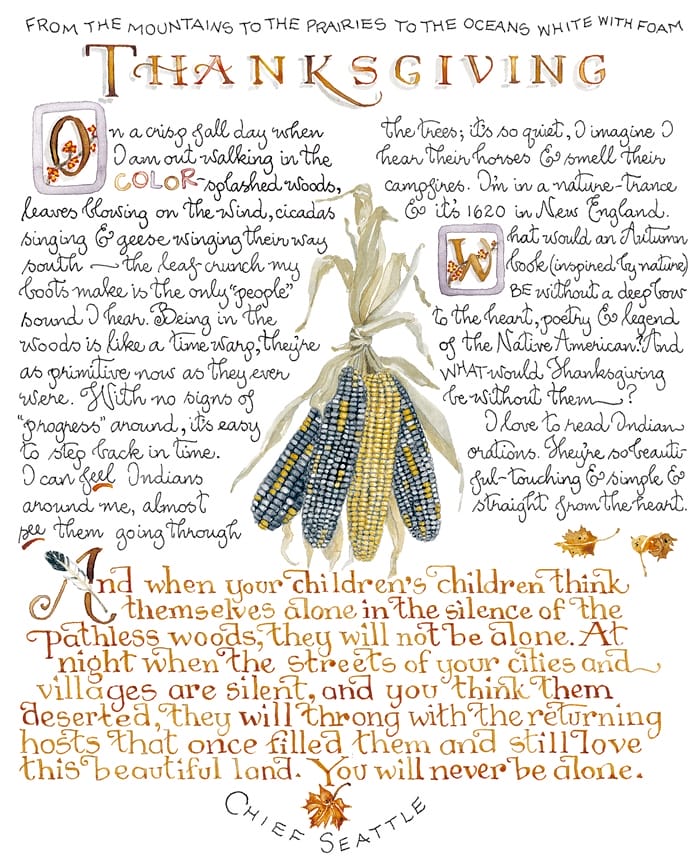 FROM THE MOUNTAINS TO THE PRAIRIES TO THE OCEANS WHITE WITH FOAM
THANKSGIVING
On a crisp fall day when
I am out walking in the
COLOR-splashed woods,
leaves blowing on the wind, cicadas
singing & geese winging their way
south — the leaf-crunch my
boots make is the only "people"
sound I hear. Being in the
woods is like a time warp, they're
as primitive now as they ever
were. With no signs of
"progress" around, it's easy
to step back in time.
I can feel Indians
around me, almost
see them going through
the trees; it's so quiet, I imagine I
hear their horses & smell their
campfires. I'm in a nature-trance
& it's 1620 in New England.
What would an Autumn
book (inspired by nature)
BE without a deep bow
to the heart, poetry & legend
of the Native American? And
WHAT would Thanksgiving
be without them—?
I love to read Indian
orations. They're so beauti-
ful-touching & simple &
straight from the heart.
And when your children's children think
themselves alone in the silence of the
pathless woods, they will not be alone. At
night when the streets of your cities and
villages are silent, and you think them
deserted, they will throng with the returning
hosts that once filled them and still love
this beautiful land. You will never be alone.
CHIEF SEATTLE